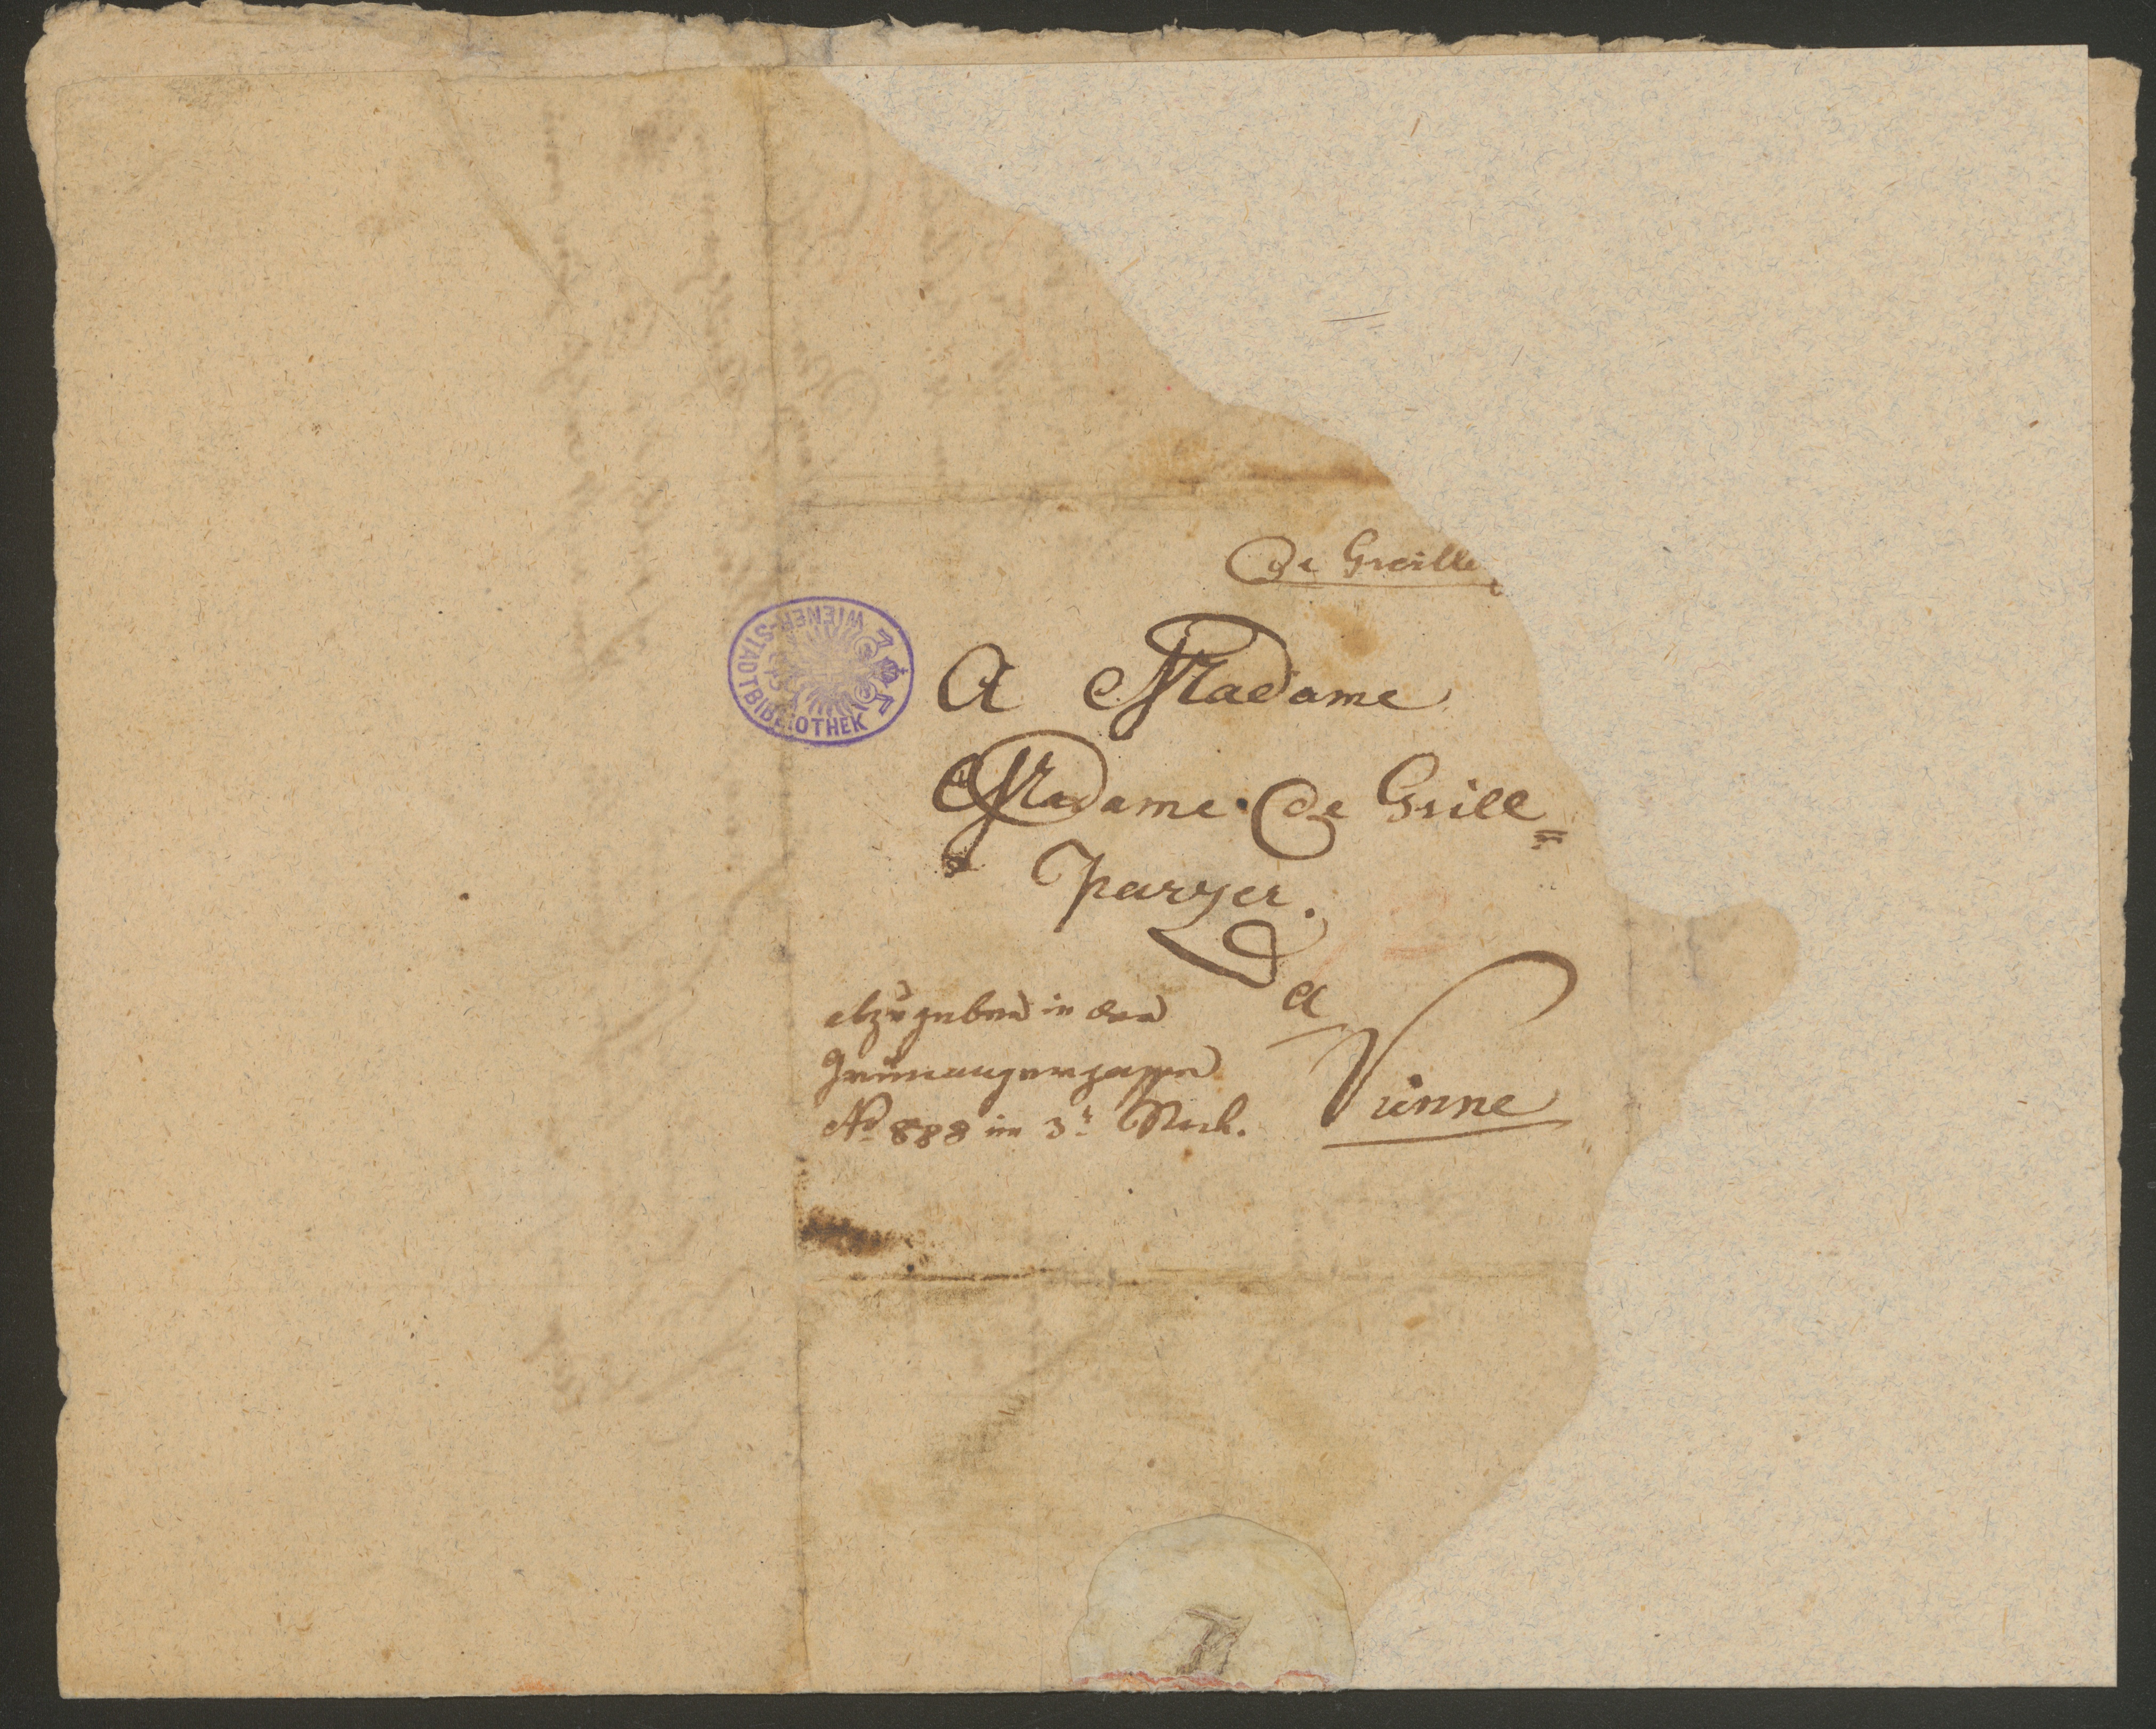 de Greille
A Madame
Madame de Grill=
parzer.
a
Vienne
abzugeben in der
Grünangergasse
No 888 im 3t Stock.
WIENER-STADTBIBLIOTHEK